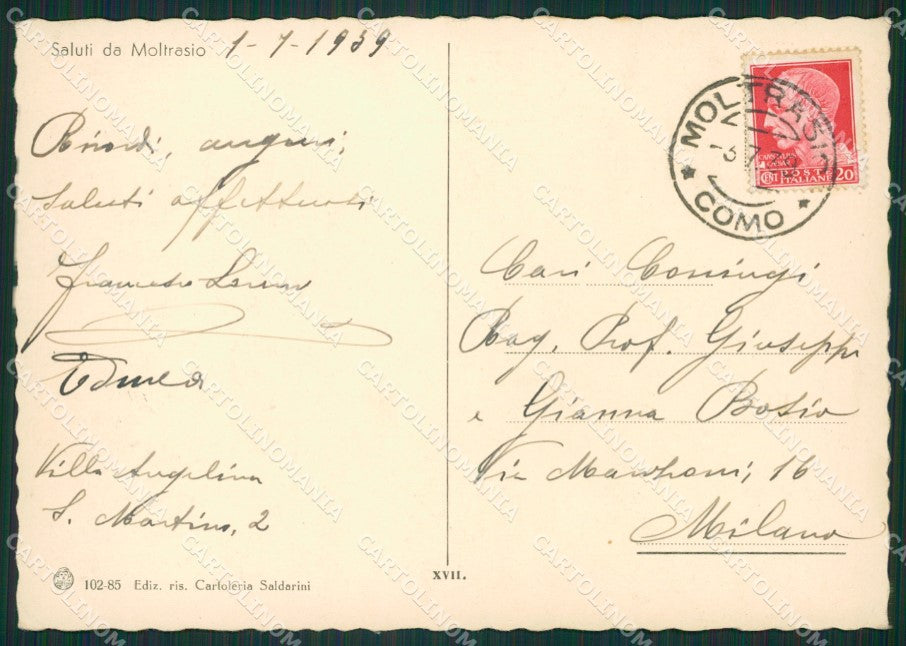 Saluti da Moltrasio 1-7-1939
Ricordi, auguri,
saluti affettuosi
Francesco
Villa Angelina
S. Martino, 2
102-85 Ediz. ris. Cartoleria Saldarini
XVII.
MOLTRASIO
COMO
POSTE
ITALIANE
CENT 20
Cari Coniugi
Rag. Prof. Giuseppe
e Gianna Bosio
Via Manzoni, 16
Milano
CARTOLINOMANIA